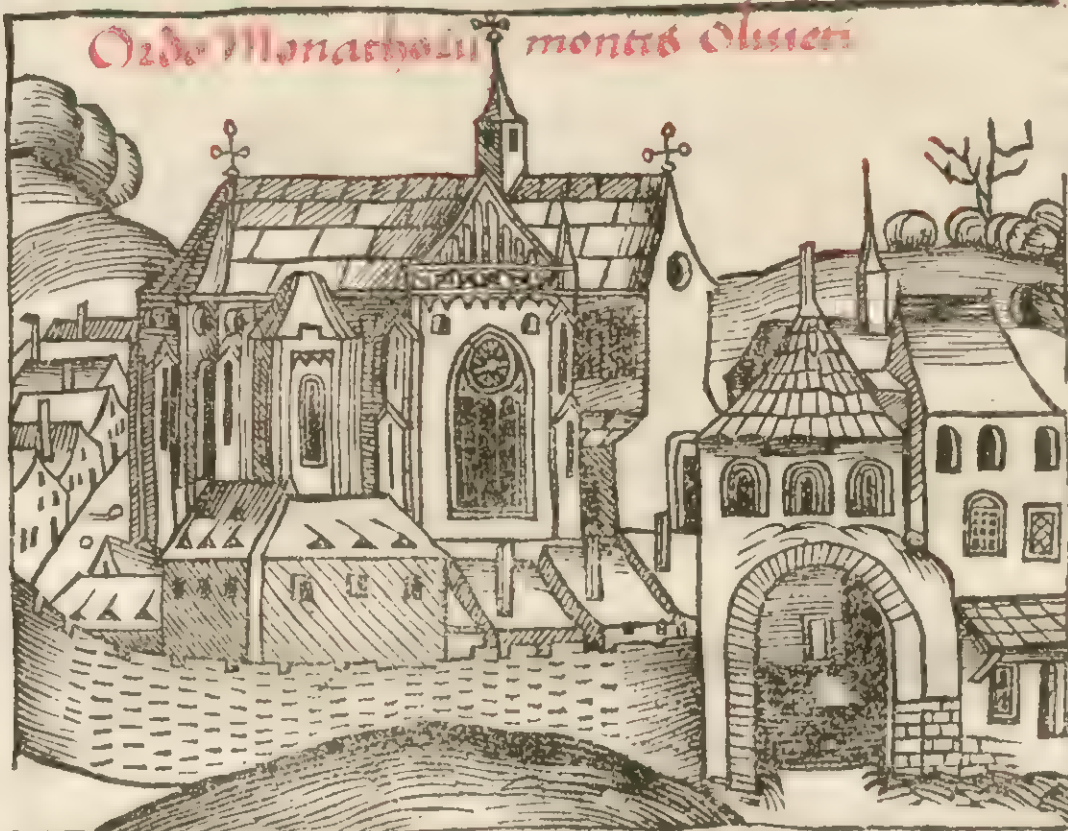 Ordo Monachorum montis Oliueti